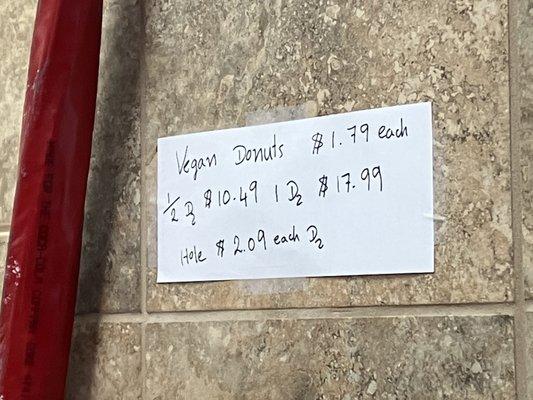 Vegan Donuts $1.79 each
1/2 Dz $10.49 1 Dz $17.99
Hole $2.09 each Dz